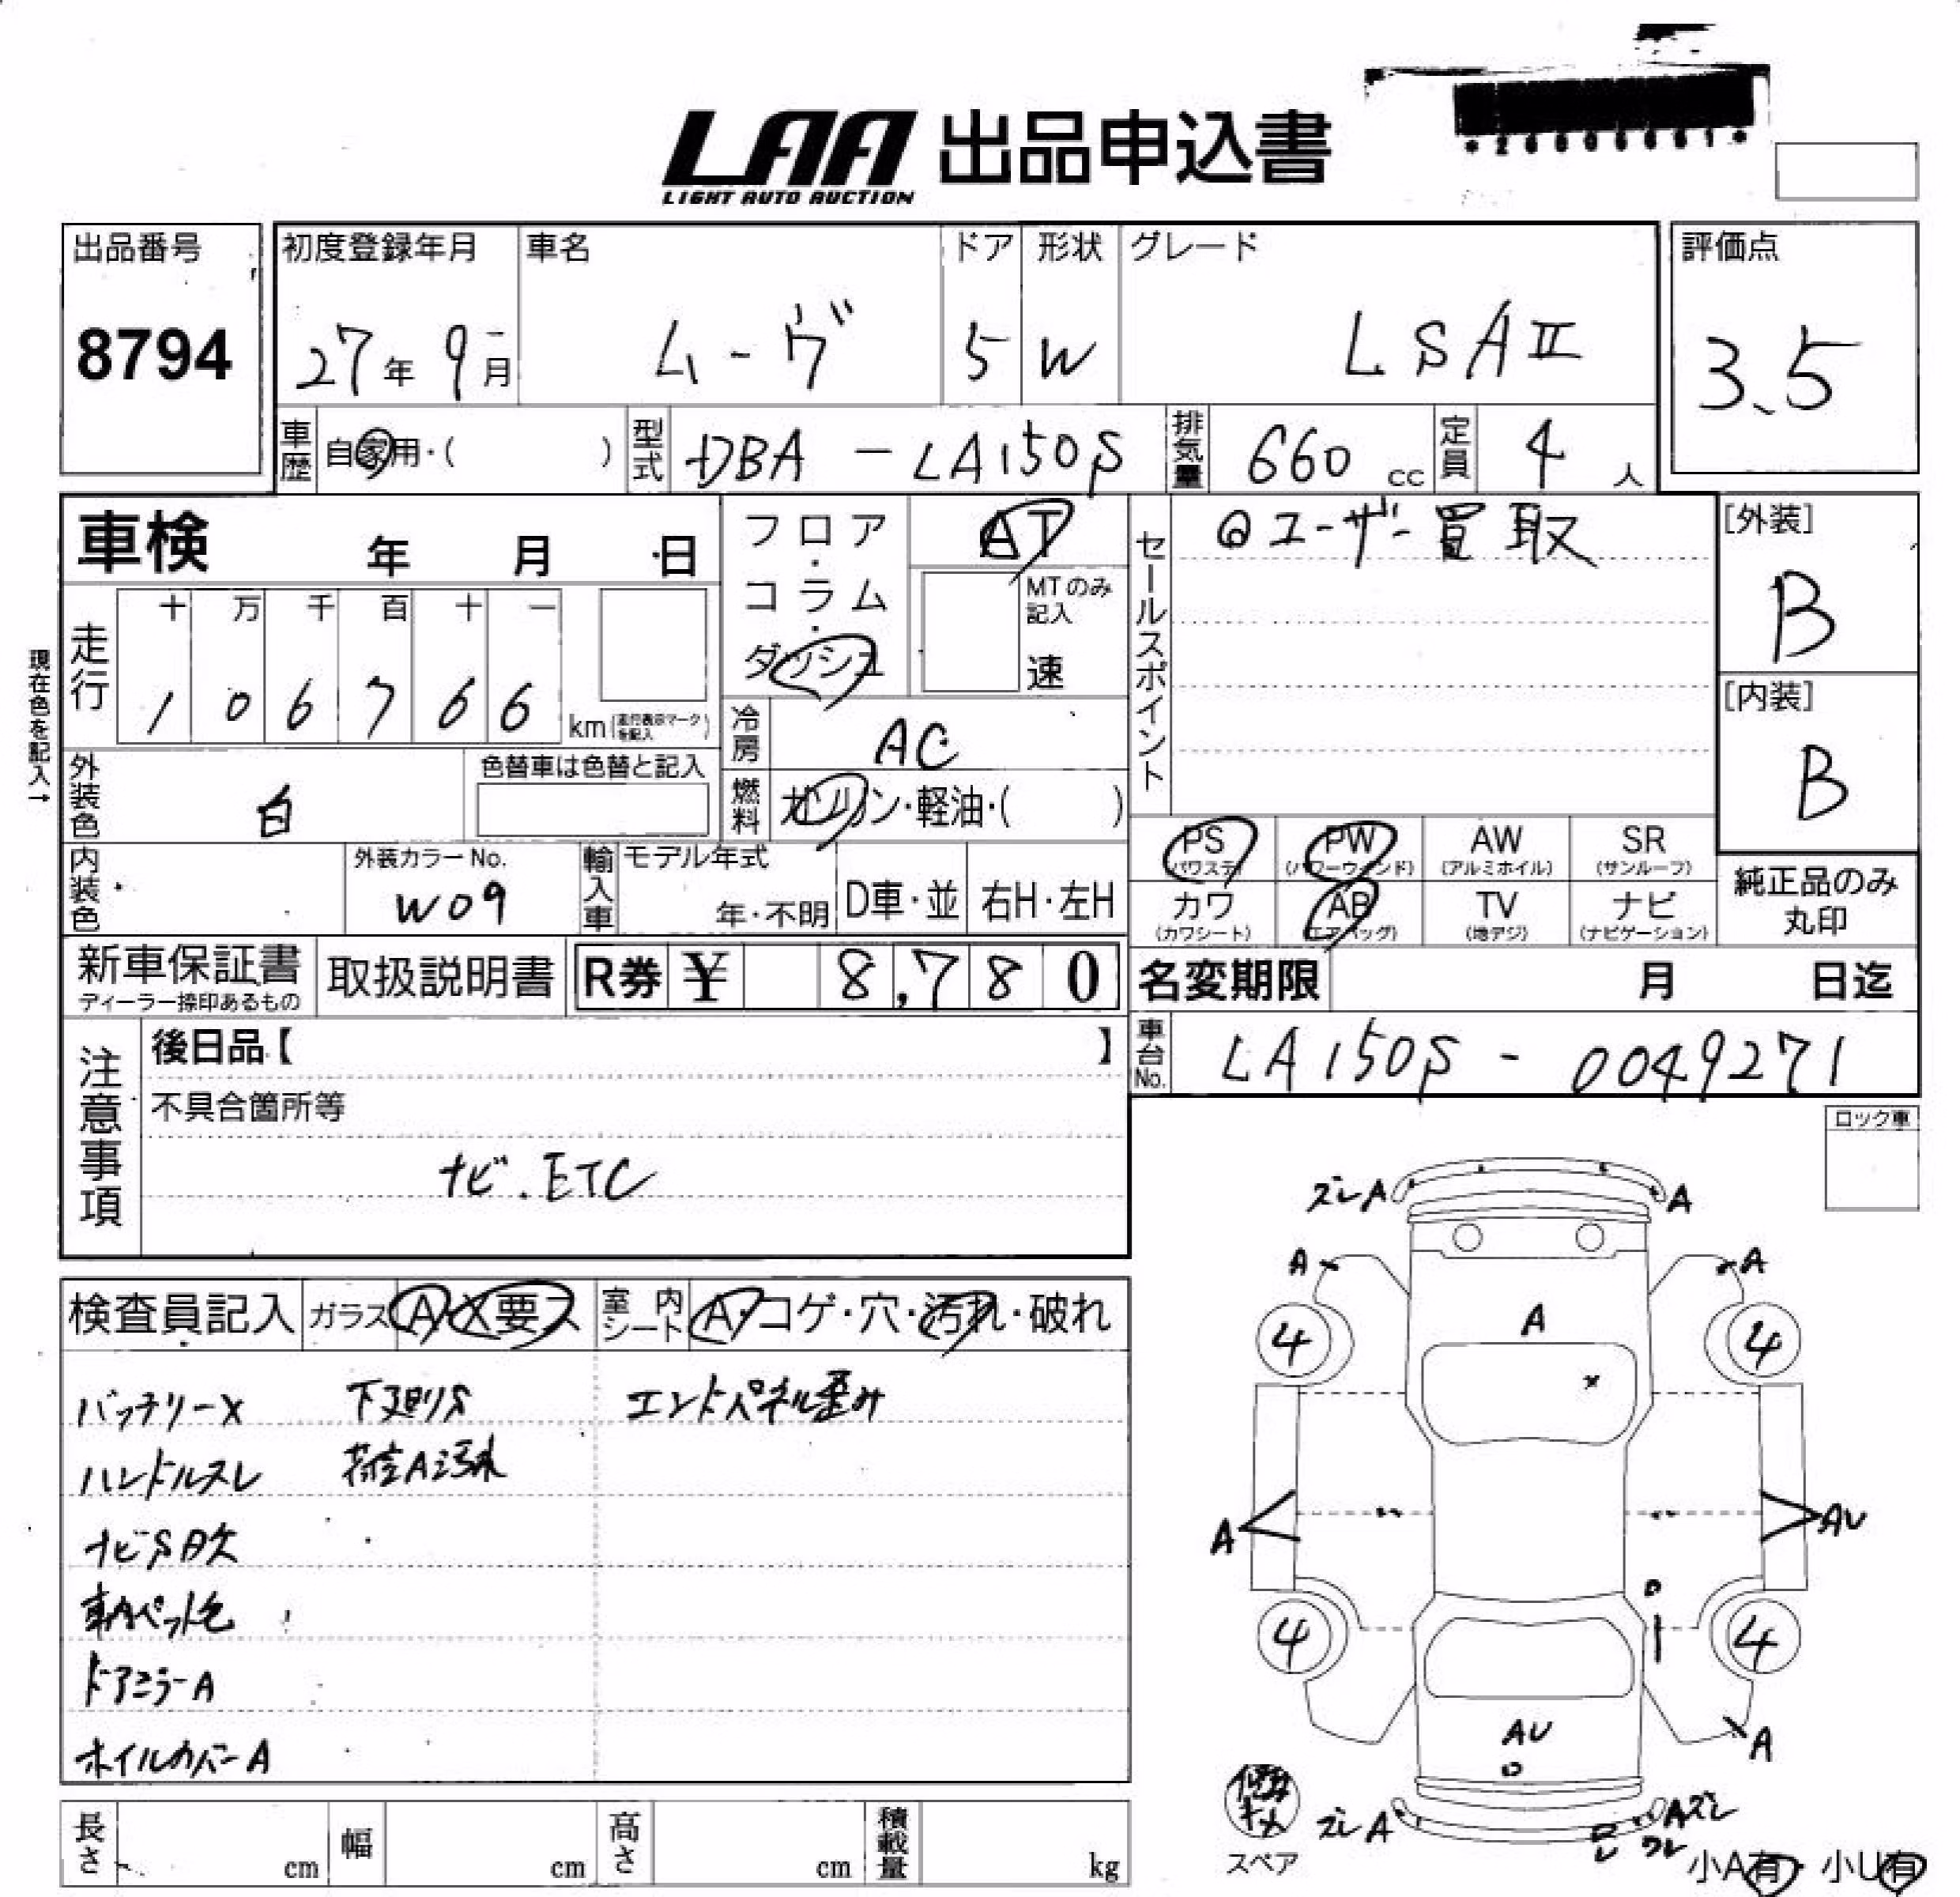 LAA 出品申込書
LIGHT AUTO AUCTION
出品番号 初度登録年月 車名 ドア 形状 グレード 評価点
8794 27年 9月 ムーヴ 5 W LSAⅡ 3.5
車歴 自家用・( ) 型式 DBA-LA150S 排気量 660 cc 定員 4 人
車検 年 月 日
フロア・コラム・ダッシュ
AT
MTのみ記入
速
セールスポイント
◎ユーザー買取
[外装]
B
[内装]
B
現在色を記入→
走行 十 万 千 百 十 一
1 0 6 7 6 6 km (走行表示マークを記入)
冷房 AC
外装色 白 色替車は色替と記入
燃料 ガソリン・軽油・( )
内装色 外装カラーNo. W09
輸入車 モデル年式 年・不明 D車・並 右H・左H
PS (パワステ) PW (パワーウィンド) AW (アルミホイル) SR (サンルーフ)
カワ (カワシート) AB (エアバッグ) TV (地デジ) ナビ (ナビゲーション)
純正品のみ丸印
新車保証書 取扱説明書 R券 ¥ 8,780
ディーラー捺印あるもの
名変期限 月 日迄
車台No. LA150S-0049271
注意事項
後日品【 】
不具合箇所等
ナビ.ETC
ロック車
検査員記入 ガラス A X要ス 室内シート A・コゲ・穴・汚れ・破れ
バッテリーX 下廻りS エンドパネル歪み
ハンドルスレ 荷室A汚れ
ナビSD欠
ドアミラーA
ホイルカバーA
ズレA A
A A
4 A 4
X
A AU
4 4
AU
A
ズレA Aズレ
ワレ
スペア
小A有・小U有
長さ cm 幅 cm 高さ cm 積載量 kg